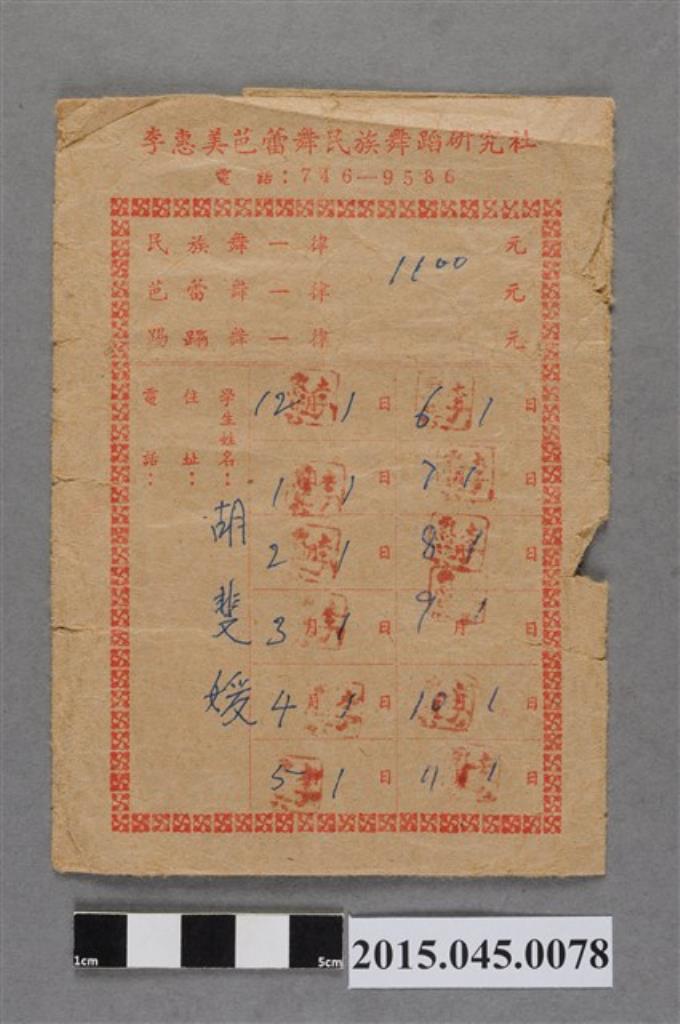 李惠美芭蕾舞民族舞蹈研究社
電 話：746—9586
民族舞一律 1100 元
芭蕾舞一律 元
踢蹋舞一律 元
學生姓名：胡斐媛
住址：
電話：
12月1日 6 1日
1 1日 7 1日
2 1日 8月1日
3月1日 9月1日
4月1日 10月1日
5 1日 11 1日
1cm 5cm
2015.045.0078